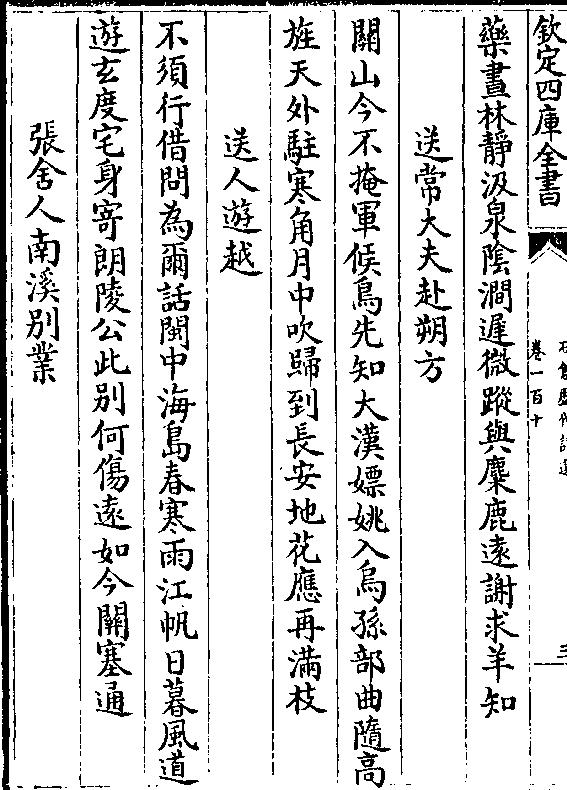 欽定四庫全書
卷一百十
三
藥晝林靜汲泉陰澗遲微蹤與麋鹿遠謝求羊知
送常大夫赴朔方
關山今不掩軍候鳥先知大漢嫖姚入烏孫部曲隨高
旌天外駐寒角月中吹歸到長安地花應再滿枝
送人遊越
不須行借問為爾話閩中海島春寒雨江帆日暮風道
遊玄度宅身寄朗陵公此别何傷遠如今關塞通
張舍人南溪别業